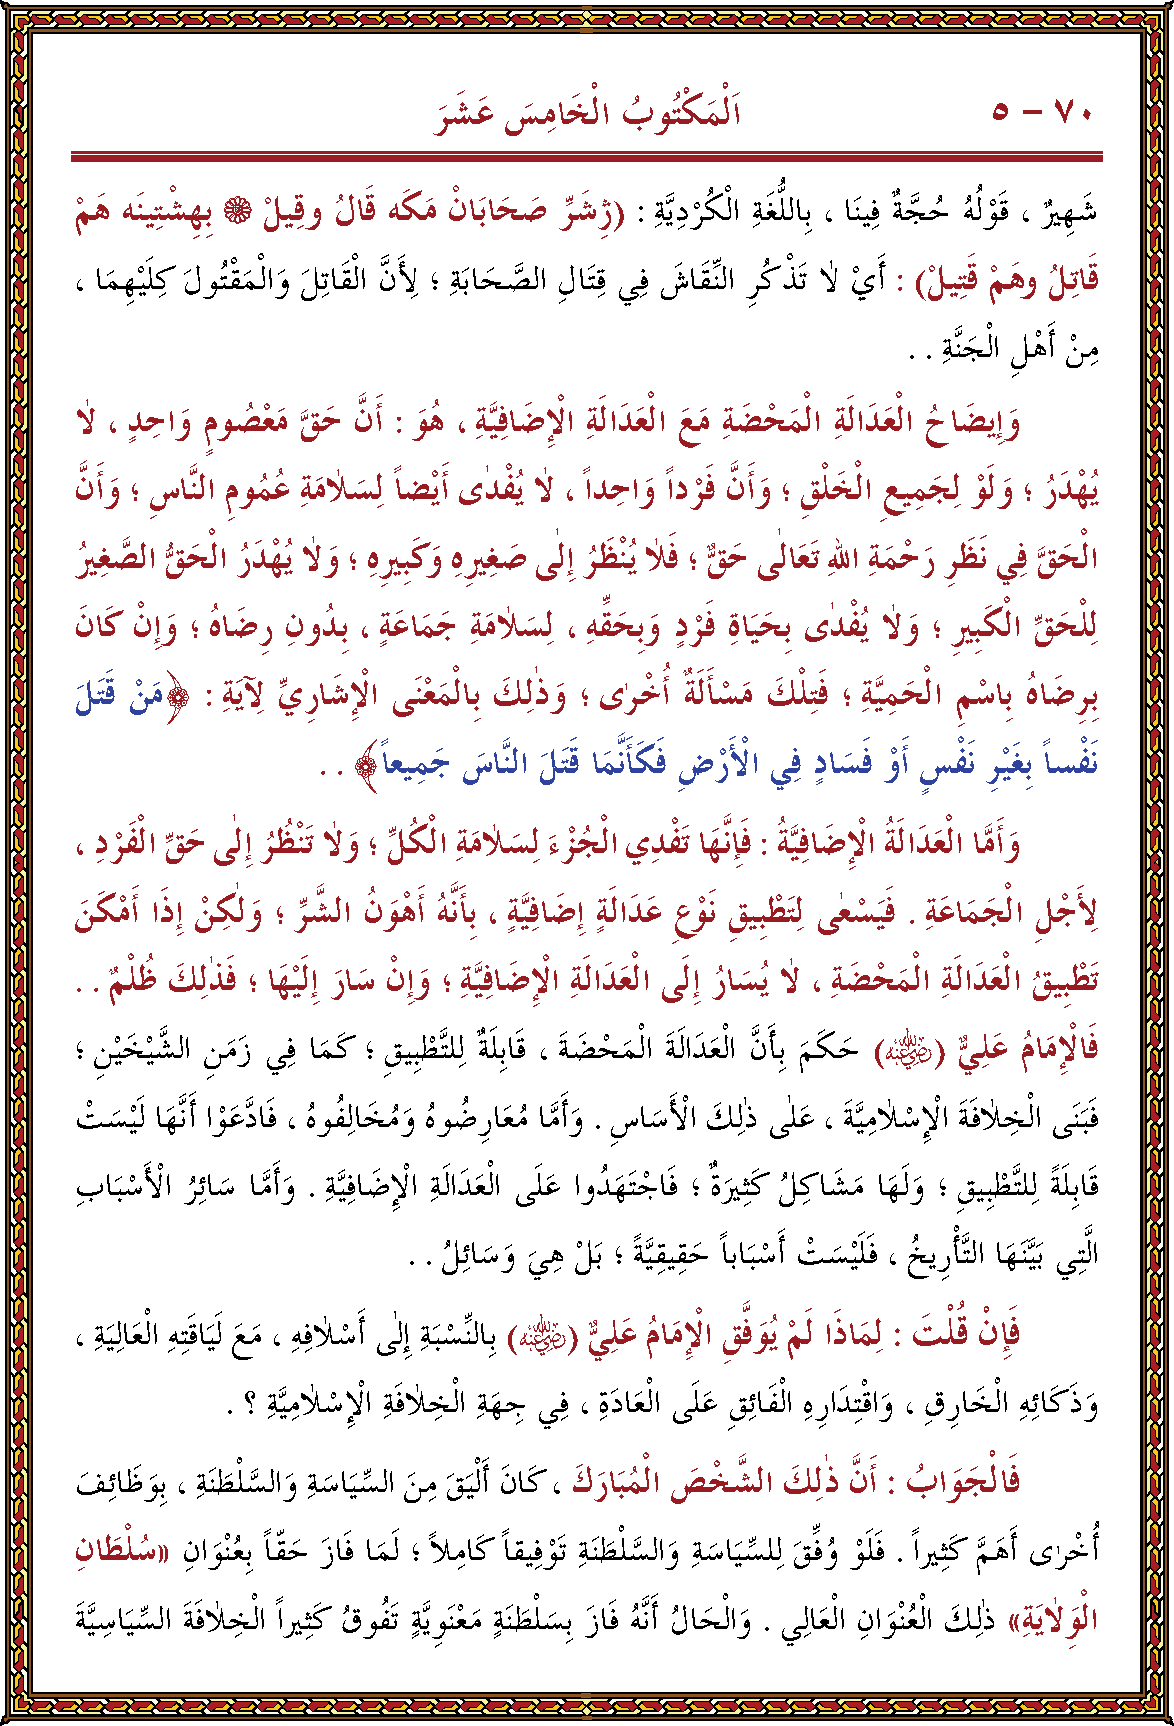 ٧٠ – ٥ اَلْمَكْتُوبُ الْخَامِسَ عَشَرَ
شَهِيرٌ ، قَوْلُهُ حُجَّةٌ فِينَا ، بِاللُّغَةِ الْكُرْدِيَّةِ : (ژِشَرِّ صَحَابَانْ مَكَه قَالُ وقِيلْ ❁ بِهِشْتِينَه هَمْ
قَاتِلُ وهَمْ قَتِيلْ) : أَيْ لَا تَذْكُرِ النِّقَاشَ فِي قِتَالِ الصَّحَابَةِ ؛ لِأَنَّ الْقَاتِلَ وَالْمَقْتُولَ كِلَيْهِمَا ،
مِنْ أَهْلِ الْجَنَّةِ . .
وَإِيضَاحُ الْعَدَالَةِ الْمَحْضَةِ مَعَ الْعَدَالَةِ الْإِضَافِيَّةِ ، هُوَ : أَنَّ حَقَّ مَعْصُومٍ وَاحِدٍ ، لَا
يُهْدَرُ ؛ وَلَوْ لِجَمِيعِ الْخَلْقِ ؛ وَأَنَّ فَرْداً وَاحِداً ، لَا يُفْدٰى أَيْضاً لِسَلَامَةِ عُمُومِ النَّاسِ ؛ وَأَنَّ
الْحَقَّ فِي نَظَرِ رَحْمَةِ اللهِ تَعَالٰى حَقٌّ ؛ فَلَا يُنْظَرُ إِلٰى صَغِيرِهِ وَكَبِيرِهِ ؛ وَلَا يُهْدَرُ الْحَقُّ الصَّغِيرُ
لِلْحَقِّ الْكَبِيرِ ؛ وَلَا يُفْدٰى بِحَيَاةِ فَرْدٍ وَبِحَقِّهِ ، لِسَلَامَةِ جَمَاعَةٍ ، بِدُونِ رِضَاهُ ؛ وَإِنْ كَانَ
بِرِضَاهُ بِاسْمِ الْحَمِيَّةِ ؛ فَتِلْكَ مَسْأَلَةٌ أُخْرٰى ؛ وَذٰلِكَ بِالْمَعْنَى الْإِشَارِيِّ لِآيَةِ : ﴿مَنْ قَتَلَ
نَفْساً بِغَيْرِ نَفْسٍ أَوْ فَسَادٍ فِي الْأَرْضِ فَكَأَنَّمَا قَتَلَ النَّاسَ جَمِيعاً﴾ . .
وَأَمَّا الْعَدَالَةُ الْإِضَافِيَّةُ : فَإِنَّهَا تَفْدِي الْجُزْءَ لِسَلَامَةِ الْكُلِّ ؛ وَلَا تَنْظُرُ إِلٰى حَقِّ الْفَرْدِ ،
لِأَجْلِ الْجَمَاعَةِ . فَيَسْعٰى لِتَطْبِيقِ نَوْعِ عَدَالَةٍ إِضَافِيَّةٍ ، بِأَنَّهُ أَهْوَنُ الشَّرِّ ؛ وَلٰكِنْ إِذَا أَمْكَنَ
تَطْبِيقُ الْعَدَالَةِ الْمَحْضَةِ ، لَا يُسَارُ إِلَى الْعَدَالَةِ الْإِضَافِيَّةِ ؛ وَإِنْ سَارَ إِلَيْهَا ؛ فَذٰلِكَ ظُلْمٌ . .
فَالْإِمَامُ عَلِيٌّ (رضي الله عنه) حَكَمَ بِأَنَّ الْعَدَالَةَ الْمَحْضَةَ ، قَابِلَةٌ لِلتَّطْبِيقِ ؛ كَمَا فِي زَمَنِ الشَّيْخَيْنِ ؛
فَبَنَى الْخِلَافَةَ الْإِسْلَامِيَّةَ ، عَلٰى ذٰلِكَ الْأَسَاسِ . وَأَمَّا مُعَارِضُوهُ وَمُخَالِفُوهُ ، فَادَّعَوْا أَنَّهَا لَيْسَتْ
قَابِلَةً لِلتَّطْبِيقِ ؛ وَلَهَا مَشَاكِلُ كَثِيرَةٌ ؛ فَاجْتَهَدُوا عَلَى الْعَدَالَةِ الْإِضَافِيَّةِ . وَأَمَّا سَائِرُ الْأَسْبَابِ
الَّتِي بَيَّنَهَا التَّأْرِيخُ ، فَلَيْسَتْ أَسْبَاباً حَقِيقِيَّةً ؛ بَلْ هِيَ وَسَائِلُ . .
فَإِنْ قُلْتَ : لِمَاذَا لَمْ يُوَفَّقِ الْإِمَامُ عَلِيٌّ (رضي الله عنه) بِالنِّسْبَةِ إِلٰى أَسْلَافِهِ ، مَعَ لَيَاقَتِهِ الْعَالِيَةِ ،
وَذَكَائِهِ الْخَارِقِ ، وَاقْتِدَارِهِ الْفَائِقِ عَلَى الْعَادَةِ ، فِي جِهَةِ الْخِلَافَةِ الْإِسْلَامِيَّةِ ؟ .
فَالْجَوَابُ : أَنَّ ذٰلِكَ الشَّخْصَ الْمُبَارَكَ ، كَانَ أَلْيَقَ مِنَ السِّيَاسَةِ وَالسَّلْطَنَةِ ، بِوَظَائِفَ
أُخْرٰى أَهَمَّ كَثِيراً . فَلَوْ وُفِّقَ لِلسِّيَاسَةِ وَالسَّلْطَنَةِ تَوْفِيقاً كَامِلاً ؛ لَمَا فَازَ حَقّاً بِعُنْوَانِ «سُلْطَانِ
الْوَلَايَةِ» ذٰلِكَ الْعُنْوَانِ الْعَالِي . وَالْحَالُ أَنَّهُ فَازَ بِسَلْطَنَةٍ مَعْنَوِيَّةٍ تَفُوقُ كَثِيراً الْخِلَافَةَ السِّيَاسِيَّةَ